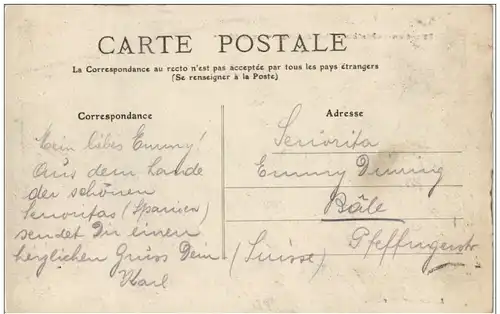 CARTE POSTALE
La Correspondance au recto n'est pas acceptée par tous les pays étrangers
(Se renseigner à la Poste)
Correspondance
Mein liebes Emmy!
Aus dem Lande
der schönen
Senoritas (Spanien)
sendet Dir einen
herzlichen Gruss Dein
Karl
Adresse
Senorita
Emmy
Bâle
Pfeffingerstr
(Suisse)